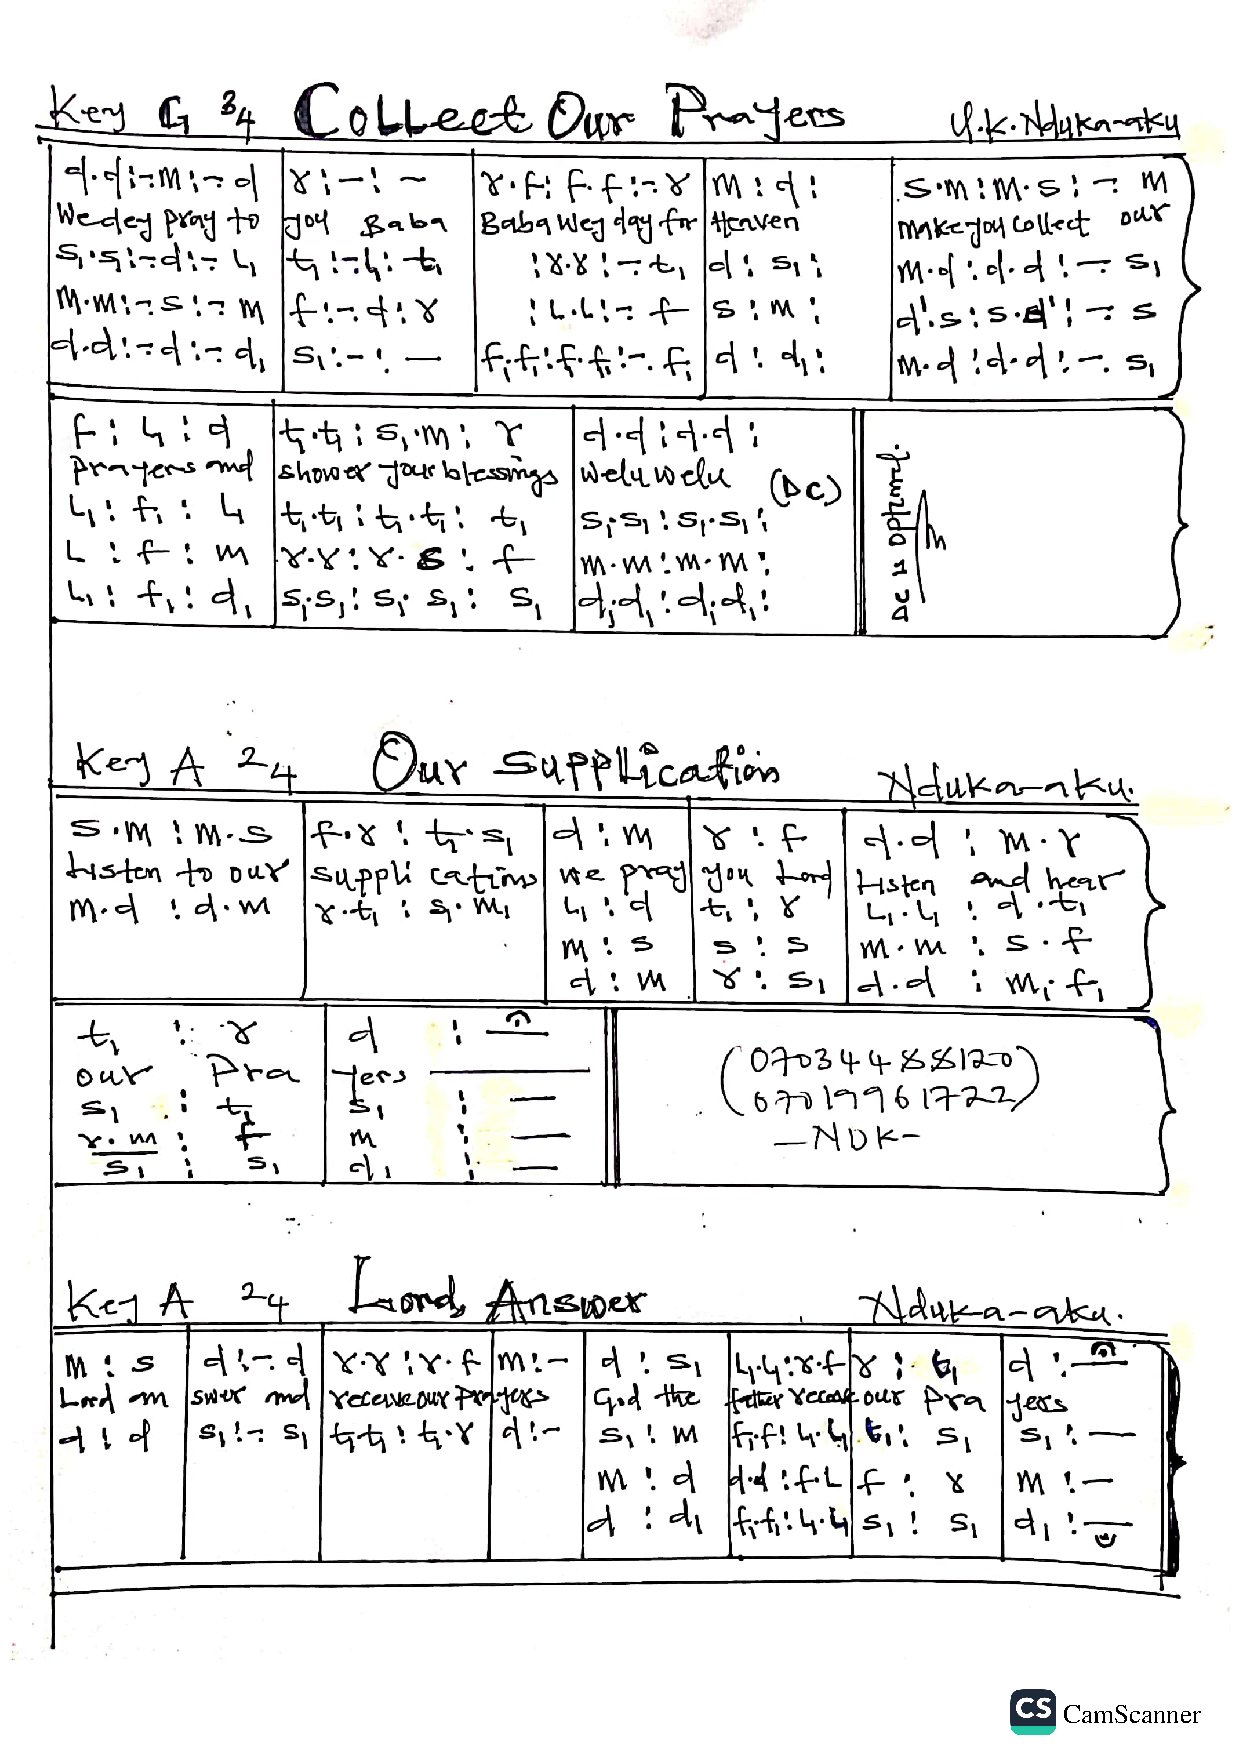 Key G 3/4 Collect Our Prayers U.K. Nduka-aku
d.d:-m:-d | r:-:- | r.f:f.f:-r | m:d: | s.m:m.s:-m
We dey pray to | you Baba | Baba wey day for | Heaven | make you collect our
s₁.s₁:-d:-l₁ | t₁:-l₁:t₁ | :r.r:-t₁ | d:s₁: | m.d:d.d:-s₁
m.m:-s:-m | f:-d:r | :l.l:-f | s:m: | d'.s:s.d':-s
d.d:-d:-d₁ | s₁:-:- | f₁.f₁:f₁.f₁:-f₁ | d:d₁: | m.d:d.d:-.s₁
f:l₁:d | t₁.t₁:s₁.m:r | d.d:d.d:
prayers and | shower your blessings | welu welu (DC)
l₁:f₁:l₁ | t₁.t₁:t₁.t₁:t₁ | s₁.s₁:s₁.s₁:
l:f:m | r.r:r.s:f | m.m:m.m:
l₁:f₁:d₁ | s₁.s₁:s₁.s₁:s₁ | d₁.d₁:d₁.d₁:
DC is optional.
Key A 2/4 Our Supplication Nduka-aku.
s.m:m.s | f.r:t₁.s₁ | d:m | r:f | d.d:m.r
Listen to our | supplications | we pray | you Lord | Listen and hear
m.d:d.m | r.t₁:s₁.m₁ | l₁:d | t₁:r | l₁.l₁:d.t₁
m:s | s:s | m.m:s.f
d:m | r:s₁ | d.d:m₁.f₁
t₁:r | d:—
our Pra | yers —
s₁:t₁ | s₁:—
r.m:f | m:—
s₁:s₁ | d₁:—
(07034488120
07019961722)
—NDK—
Key A 2/4 Lord, Answer Nduka-aku.
m:s | d:-d | r.r:r.f | m:- | d:s₁ | l₁.l₁:r.f | r:t₁ | d:—
Lord an | swer and | receive our Pra | yers | God the | father receive | our Pra | yers
d:d | s₁:-s₁ | t₁.t₁:t₁.r | d:- | s₁:m | f₁.f₁:l₁.l₁ | t₁:s₁ | s₁:—
m:d | d.d:f.l | f:r | m:—
d:d₁ | f₁.f₁:l₁.l₁ | s₁:s₁ | d₁:—
CS CamScanner